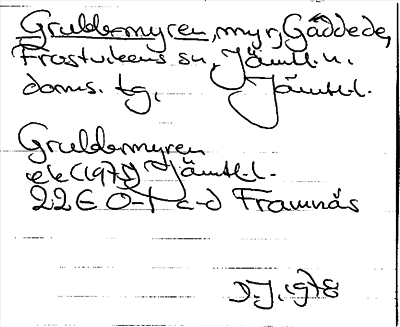 Grubbmyren, myr, Gäddede,
Frostvikens sn, Jämtl. n.
doms. tg, Jämtl.l.
Grubbmyren
ek (1975) Jämtl.l.
22E 0-1 c-d Framnäs
1978